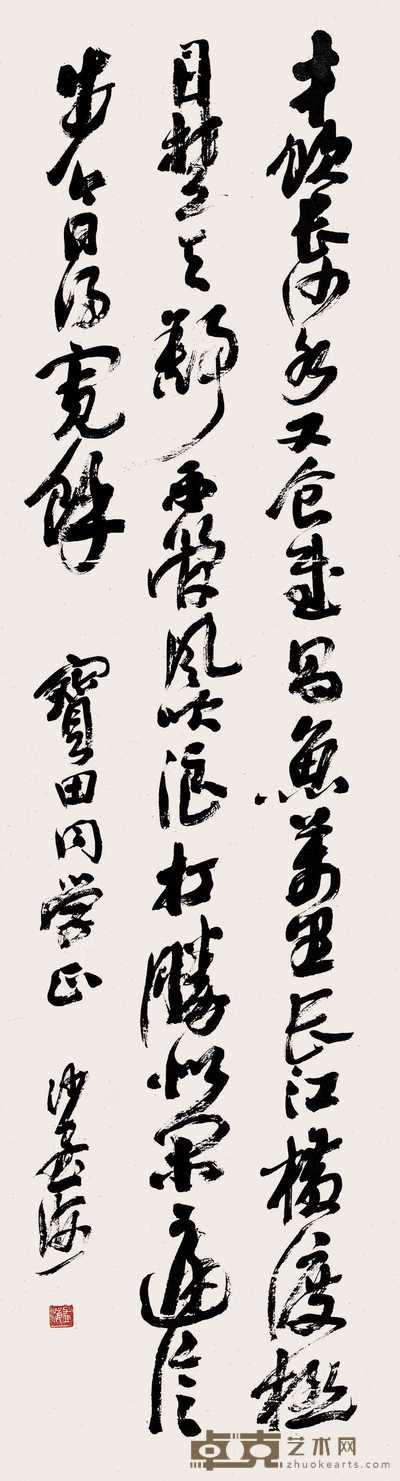 才饮长沙水又食武昌鱼万里长江横渡极
目楚天舒不管风吹浪打胜似闲庭信
步今日得宽余
寶田同学正
沙孟海
卓克艺术网
zhuokearts.com